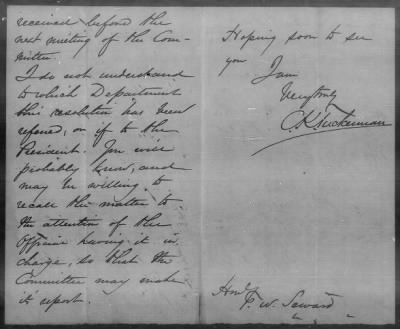 received before the
next meeting of the Com-
mittee.
I do not understand
to which Department
this resolution has been
refered, or if to the
President. You will
probably know, and
may be willing to
recall the matter to
the attention of the
Officer having it in
charge, so that the
Committee may make
it report.
Hoping soon to see
you I am
Very truly
C. K. Tuckerman
Honl
F. W. Seward